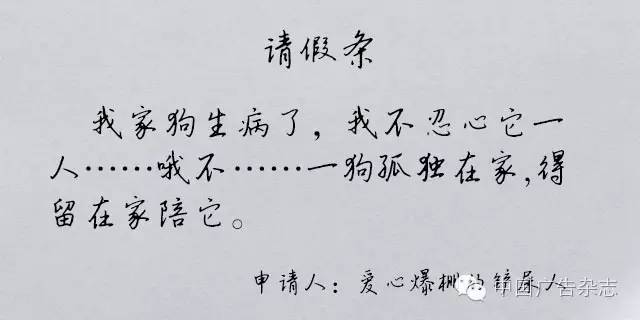 请假条
我家狗生病了，我不忍心它一
人……哦不……一狗孤独在家,得
留在家陪它。
申请人：爱心爆棚的铲屎人
中国广告杂志